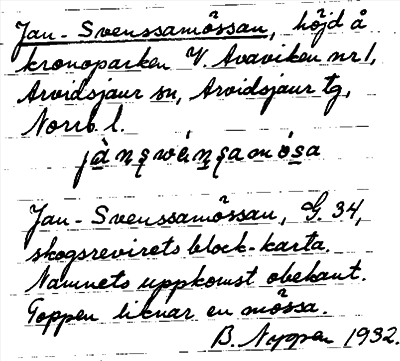 Jan-Svenssamössan, höjd å
kronoparken V. Avaviken nr 1,
Arvidsjaur sn, Arvidsjaur tg,
Norrb. l.
Jan-Svenssamössan, G 34,
skogsrevirets block-karta.
Namnets uppkomst obekant.
Toppen liknar en mössa.
B. Nyman 1932.